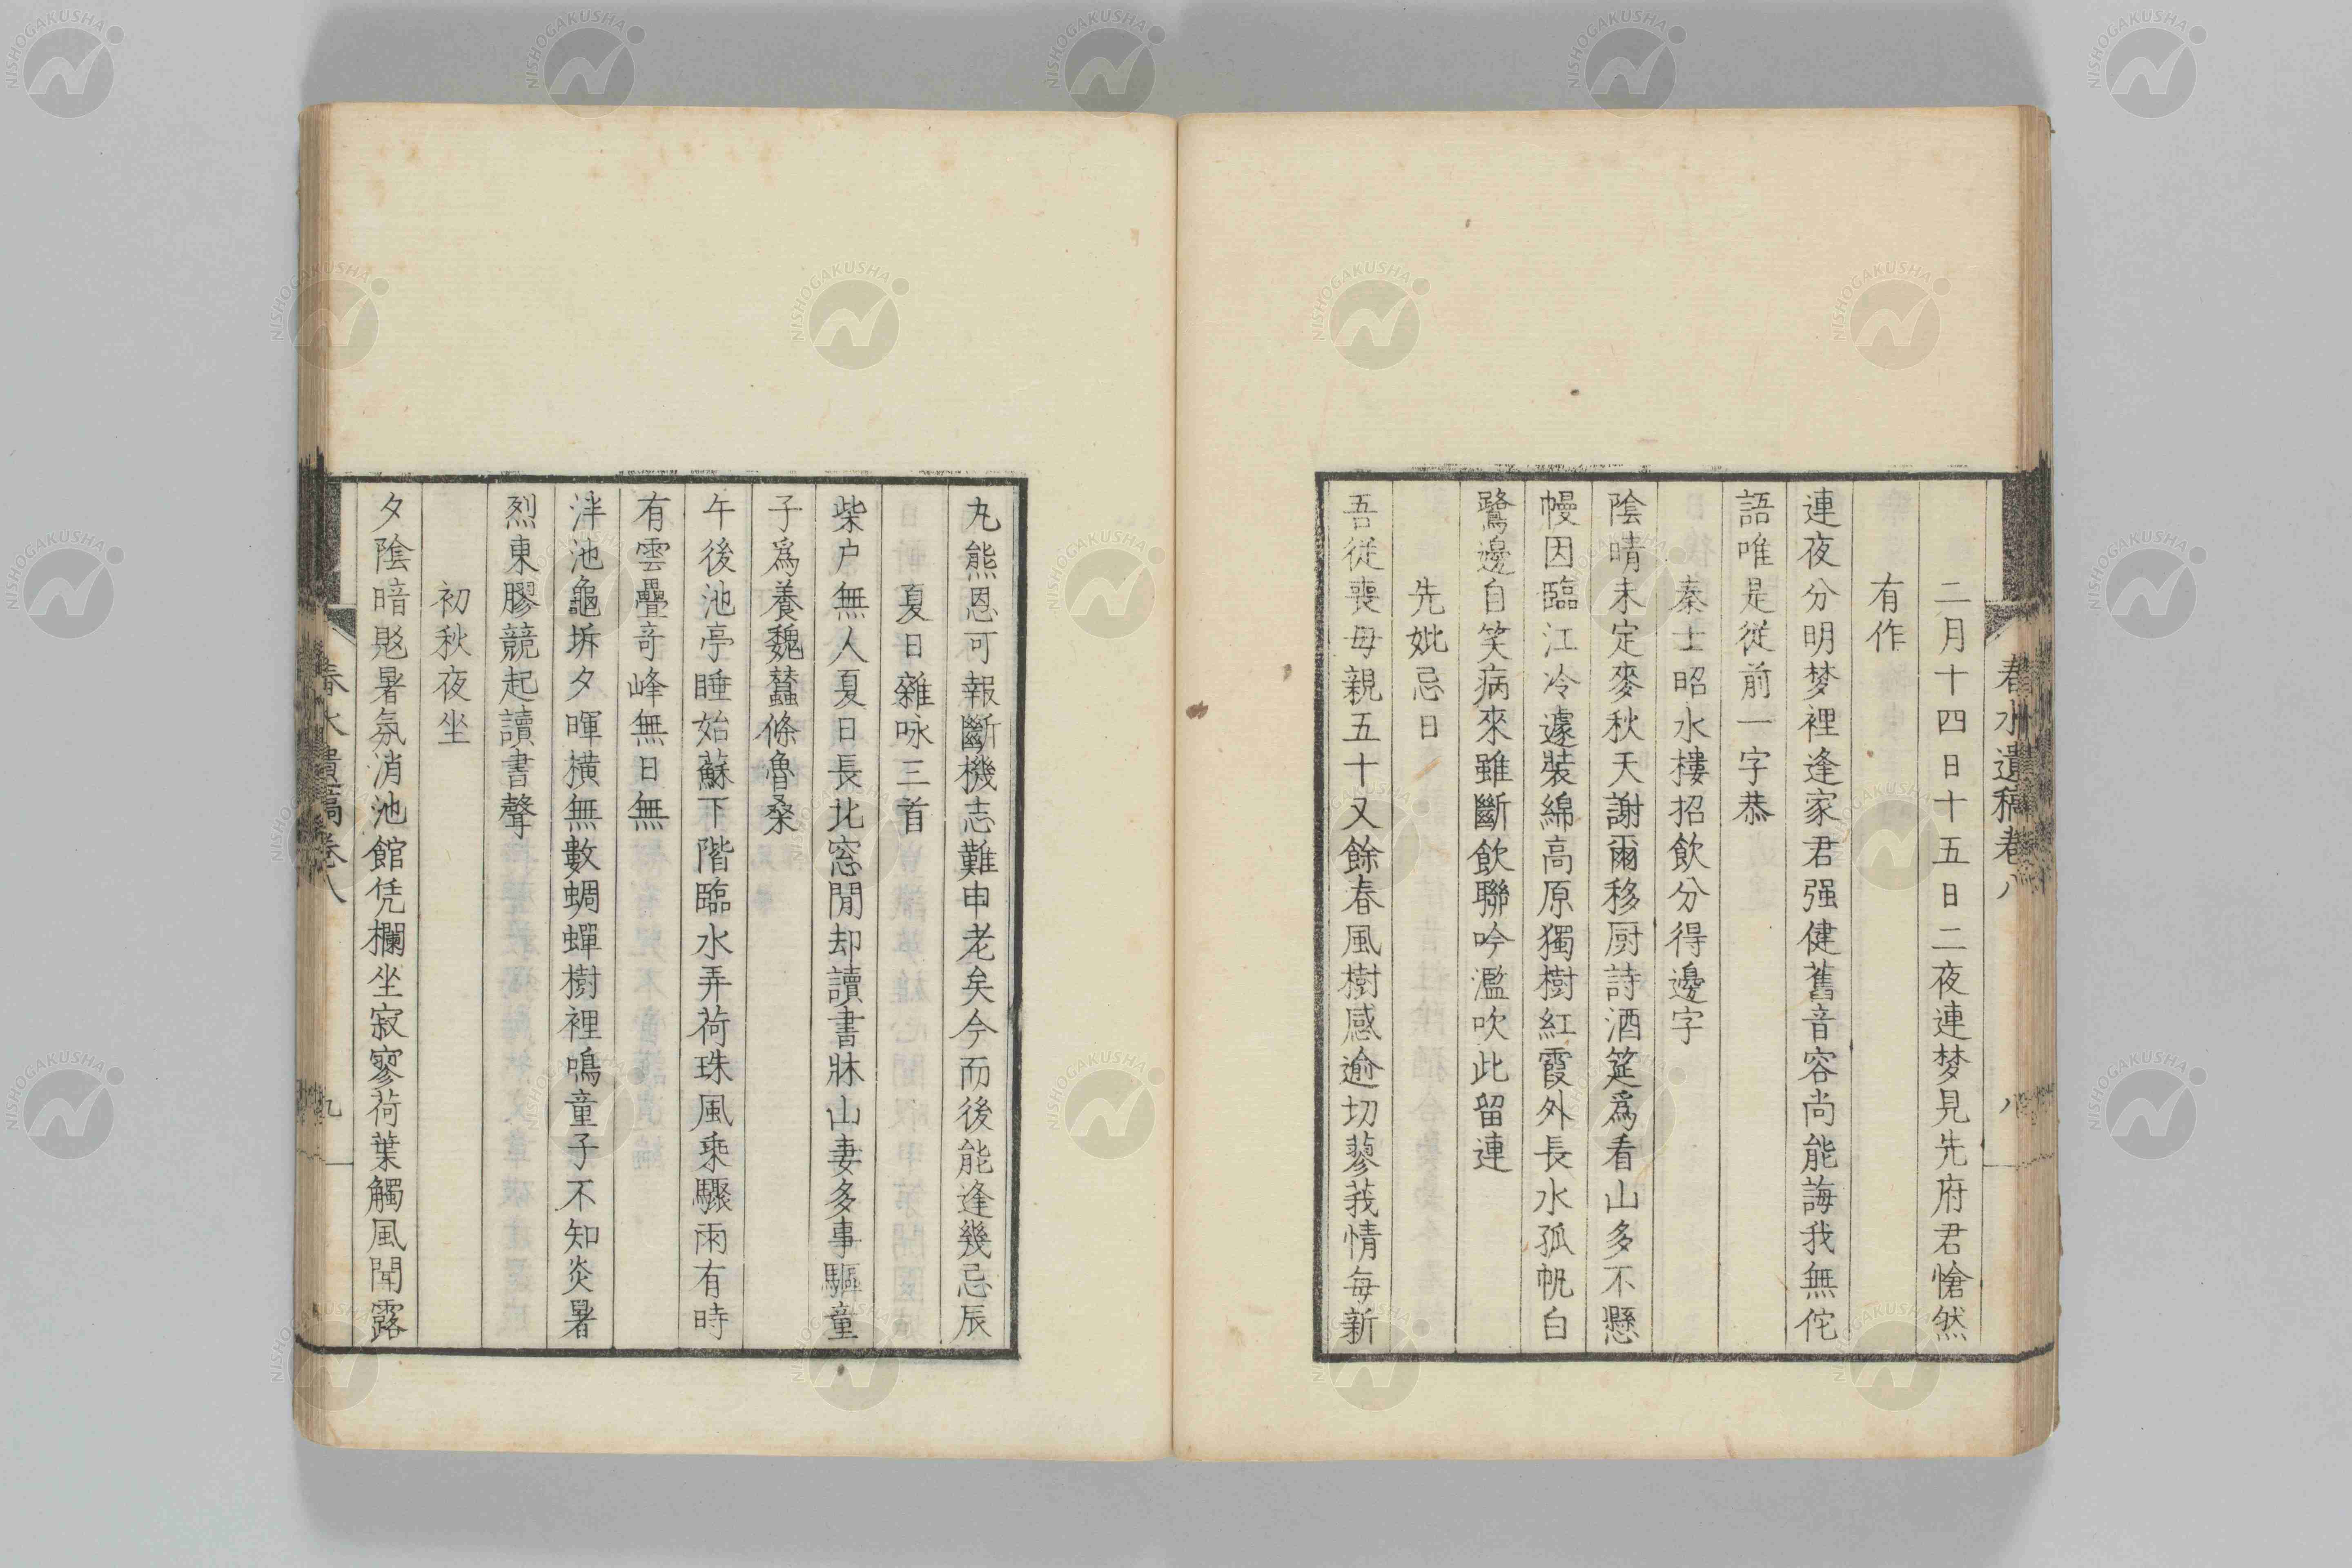 春水遺稿卷八
八
二月十四日十五日二夜連梦見先府君愴然
有作
連夜分明梦裡逢家君强健舊音容尚能誨我無侘
語唯是從前一字恭
秦士昭水樓招飲分得邊字
陰晴未定麥秋天謝爾移厨詩酒筵爲看山多不懸
幔因臨江冷遽裝綿高原獨樹紅霞外長水孤帆白
鷺邊自笑病來雖斷飲聯吟濫吹此留連
先妣忌日
吾從喪母親五十又餘春風樹感逾切蓼莪情每新
丸熊恩可報斷機志難申老矣今而後能逢幾忌辰
夏日雜咏三首
柴户無人夏日長北窓閒却讀書牀山妻多事驅童
子爲養魏蠶條魯桑
午後池亭睡始蘇下階臨水弄荷珠風乘驟雨有時
有雲疊奇峰無日無
泮池龜坼夕暉横無數蜩蟬樹裡鳴童子不知炎暑
烈東膠競起讀書聲
初秋夜坐
夕陰暗兠暑氛消池館凭欄坐寂寥荷葉觸風聞露
春水遺稿卷八
九
NISHOGAKUSHA